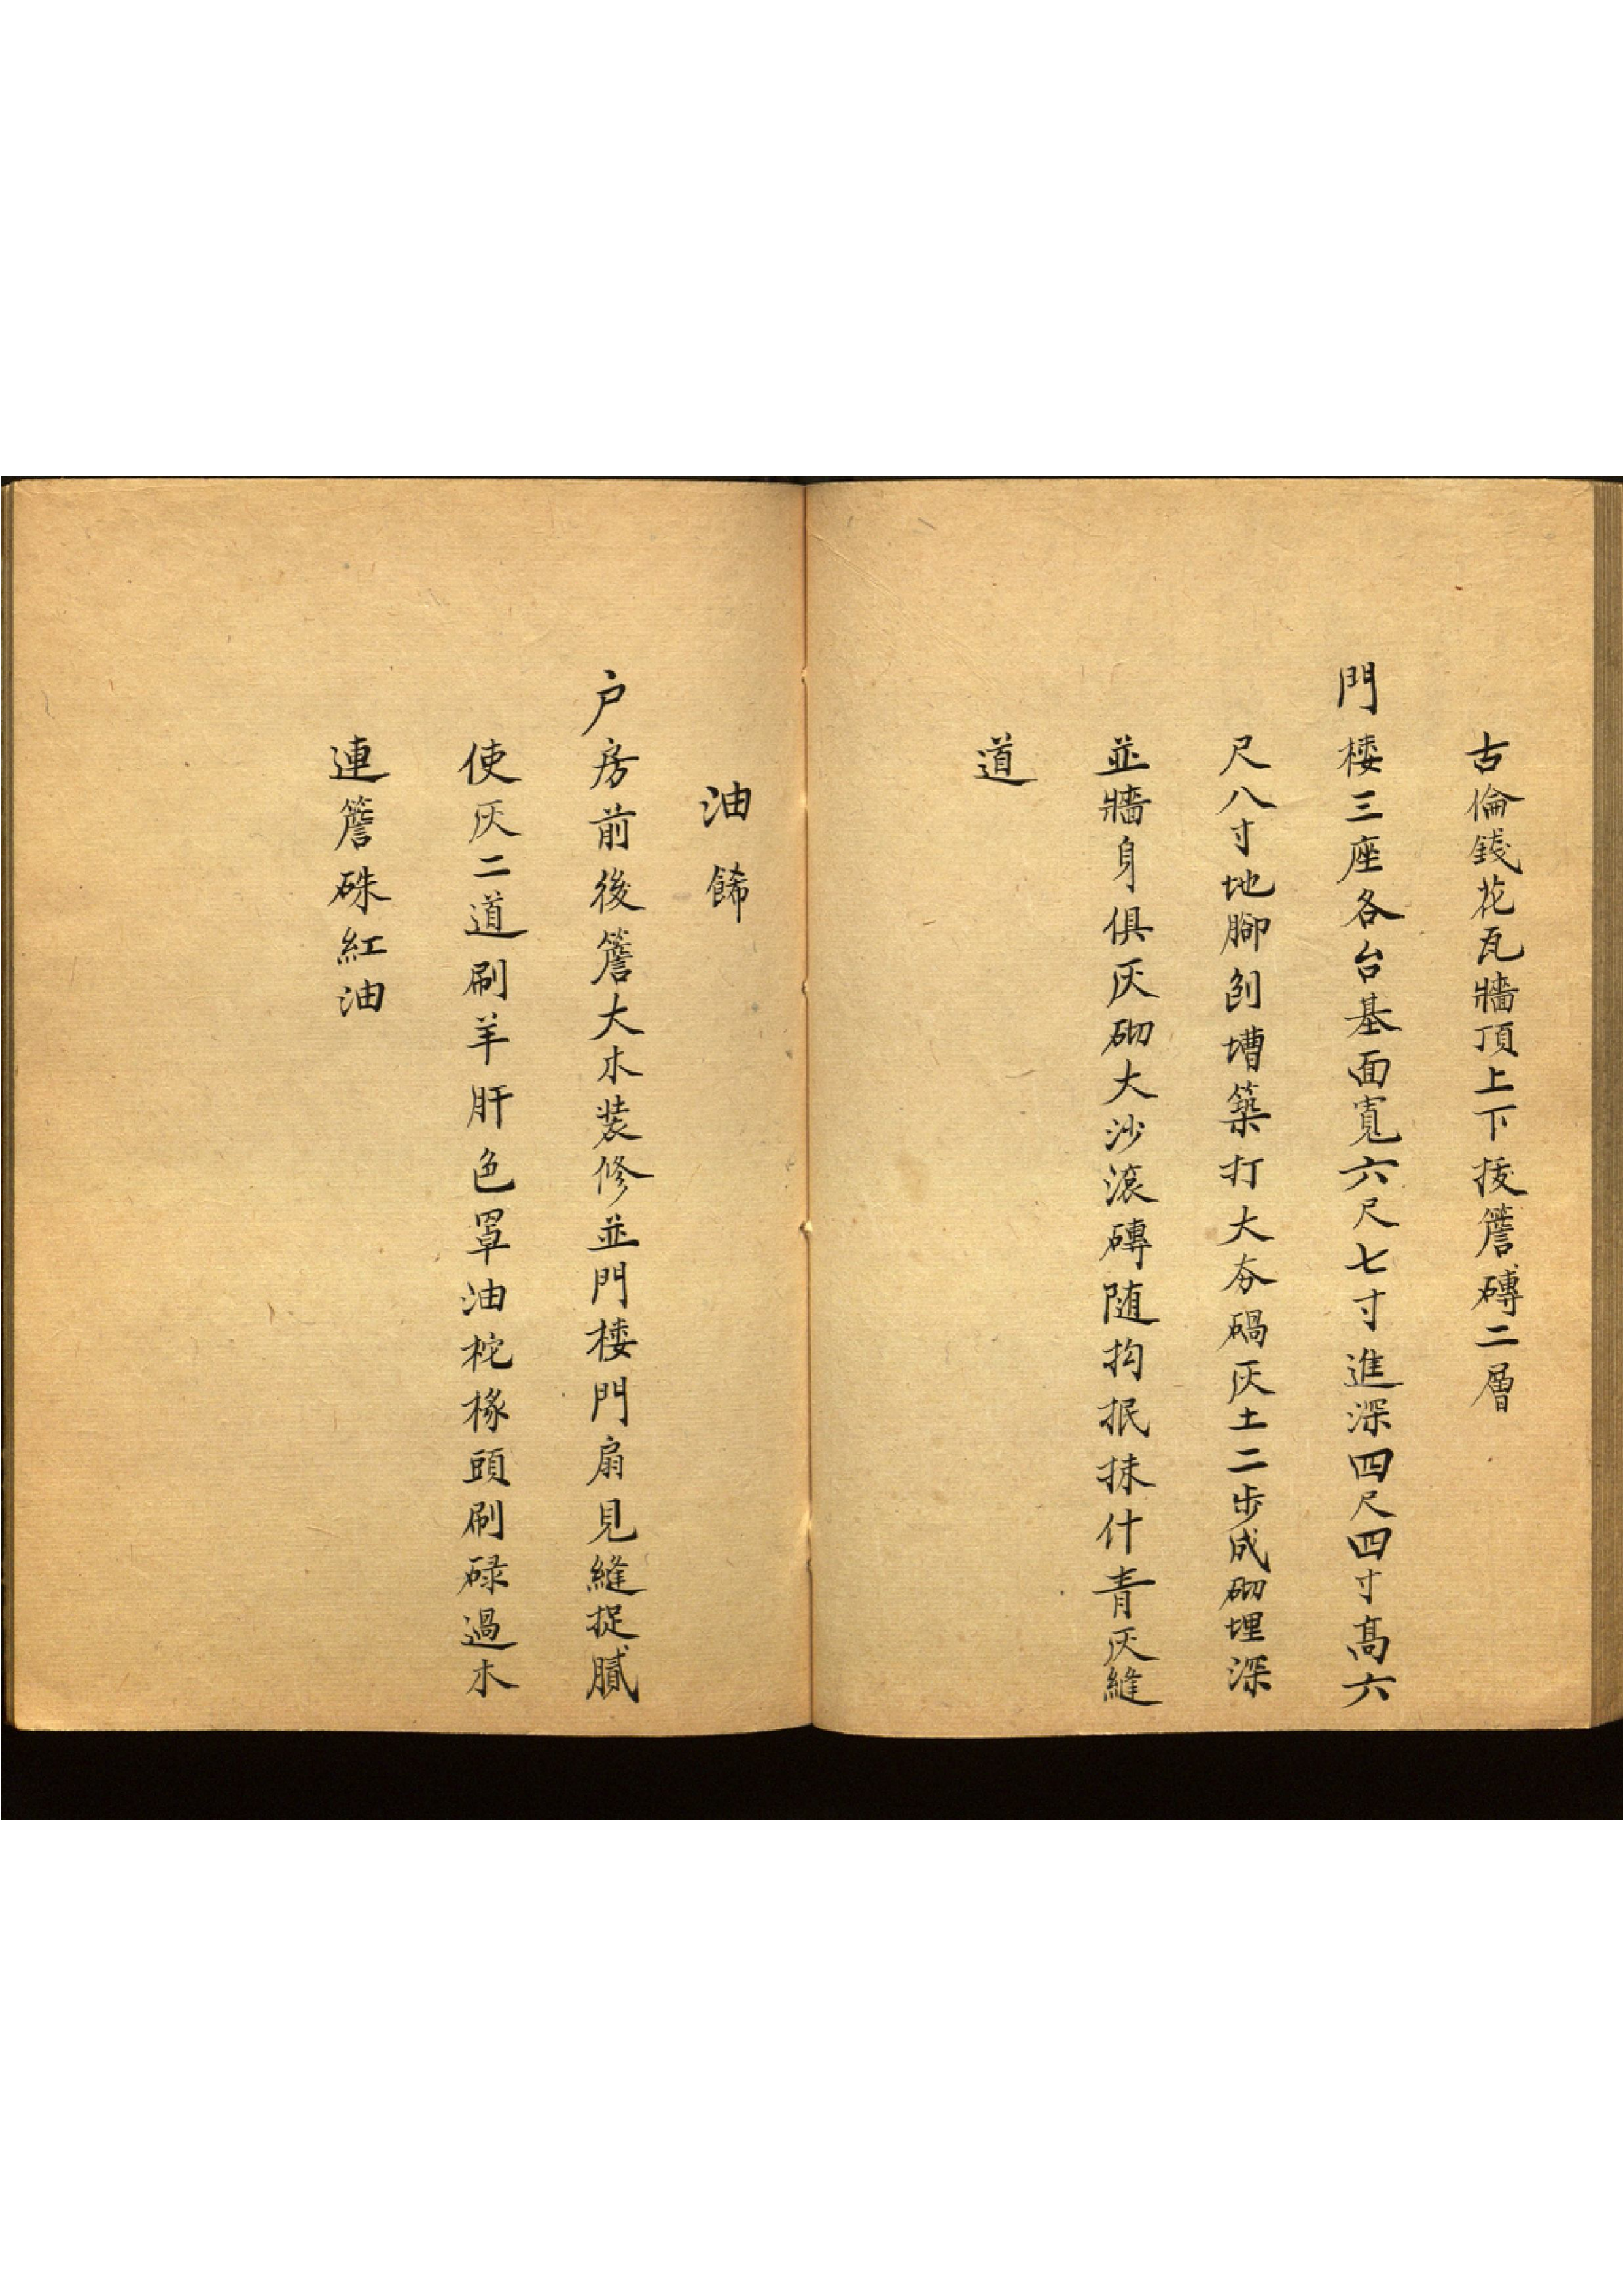 古倫錢花瓦牆頂上下拔簷磚二層
門楼三座各台基面寬六尺七寸進深四尺四寸髙六
尺八寸地腳刨槽築打大夯碢灰土二步成砌埋深
並牆身俱灰砌大沙滾磚随抅抿抹什青灰縫
道
油餙
户房前後簷大木装修並門楼門扇見縫捉膩
使灰二道刷羊肝色罩油柁椽頭刷碌過木
連簷硃紅油